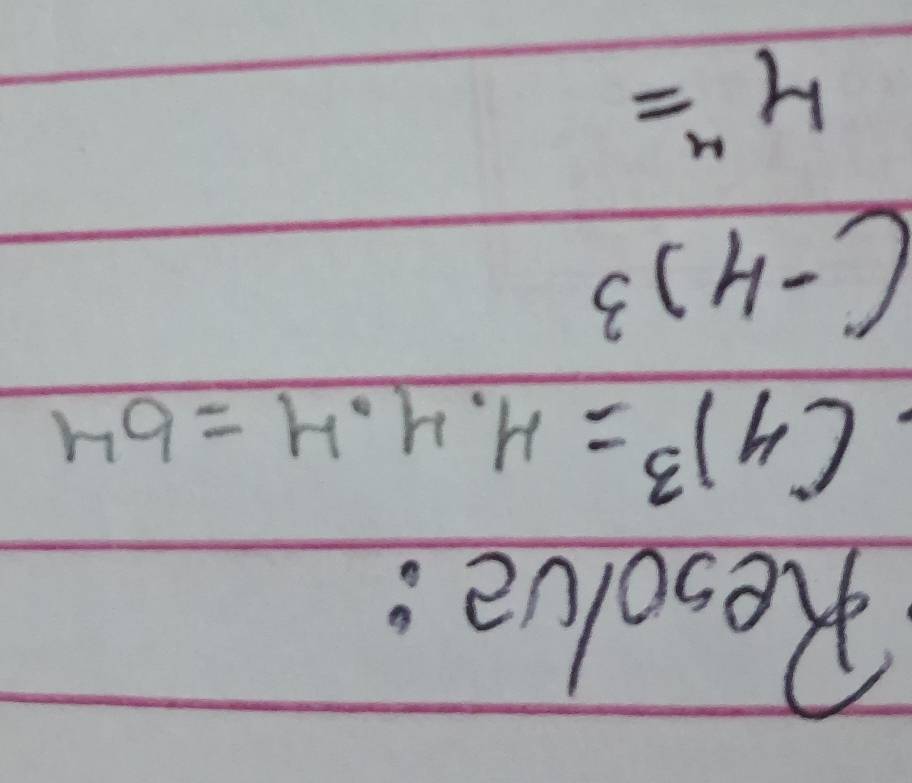 Resolva:
(4)³ = 4.4.4 = 64
(-4)³
4⁴ =